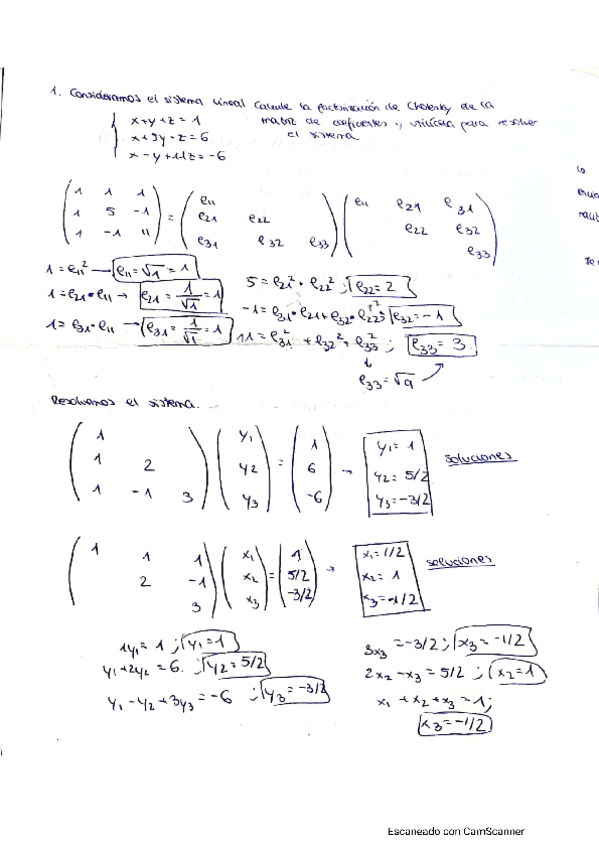 1. Consideramos el sistema lineal Calcule la factorización de Cholesky de la
x+y+z=1 matriz de coeficientes y utilícela para resolver
x+5y-z=6 el sistema
x-y+11z=-6
1 1 1 e11 e11 e21 e31
1 5 -1 = e21 e22 e22 e32
1 -1 11 e31 e32 e33 e33
1=e11² → e11=√1=1
1=e21·e11 → e21=1/√1=1
1=e31·e11 → e31=1/√1=1
5=e21²+e22²; e22=2
-1=e31·e21+e32·e22; e32=-1
11=e31²+e32²+e33²; e33=3
e33=√9
Resolvemos el sistema.
1 y1 1 y1=1
1 2 y2 = 6 → y2=5/2 soluciones
1 -1 3 y3 -6 y3=-3/2
1 1 1 x1 1 x1=1/2
2 -1 x2 = 5/2 → x2=1 soluciones
3 x3 -3/2 x3=-1/2
1y1=1; y1=1
y1+2y2=6. ; y2=5/2
y1-y2+3y3=-6 ; y3=-3/2
3x3=-3/2; x3=-1/2
2x2-x3=5/2; x2=1
x1+x2+x3=1;
x3=-1/2
Escaneado con CamScanner